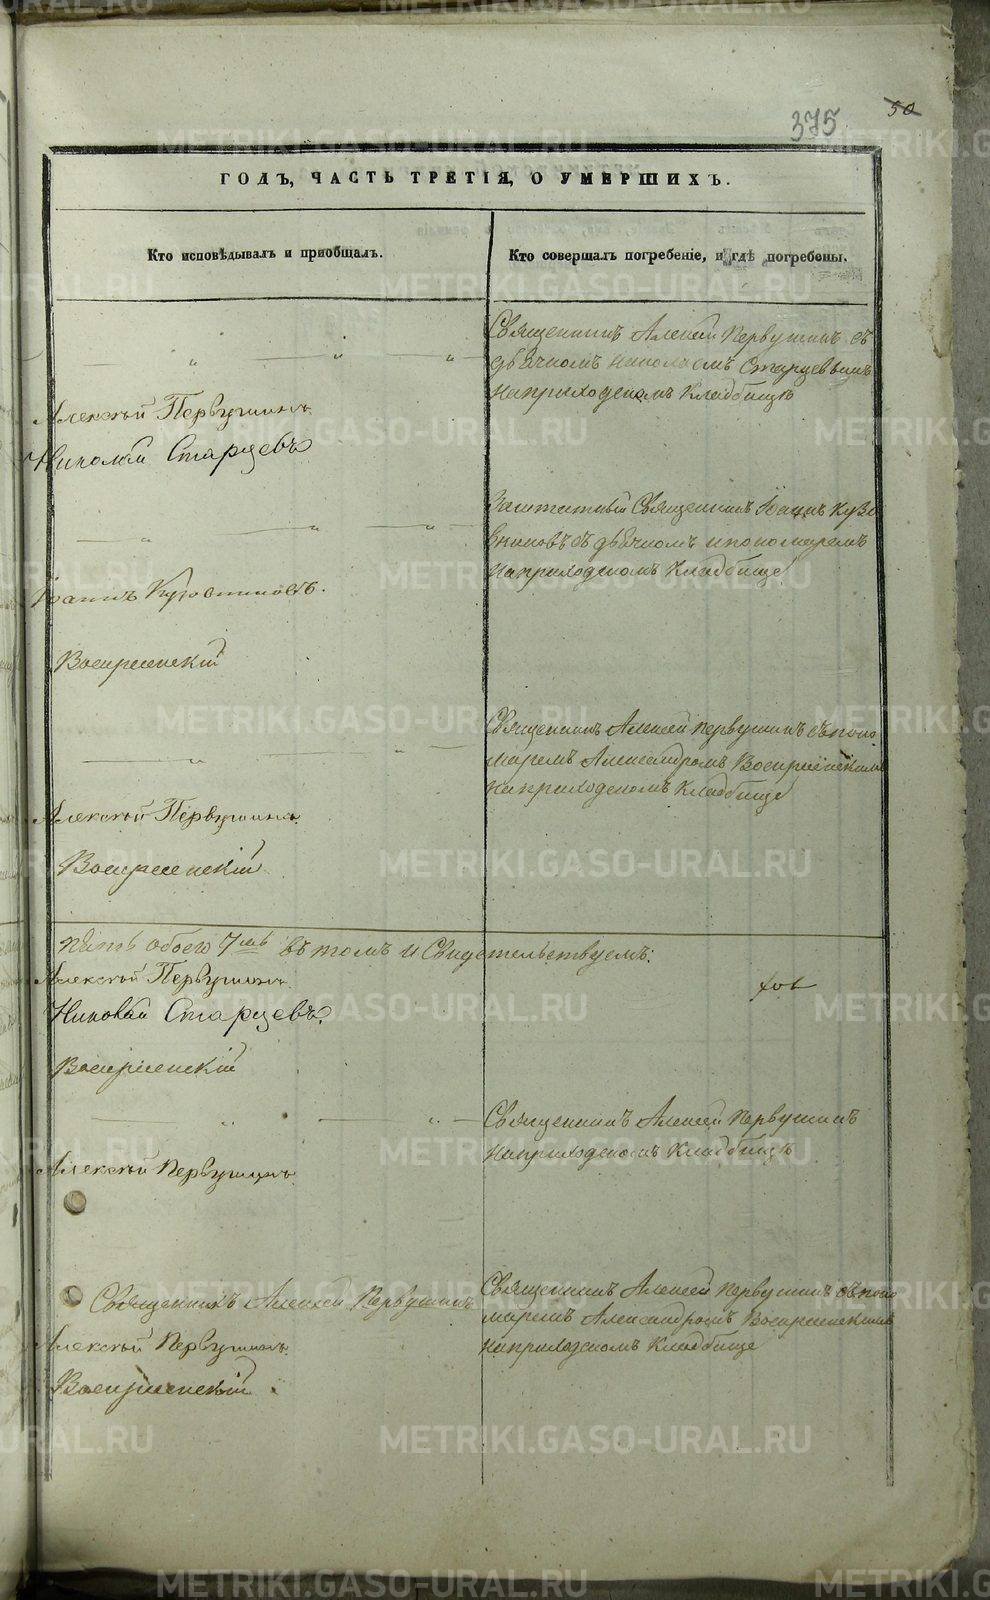 375
50
ГОДЪ, ЧАСТЬ ТРЕТІЯ, О УМЕРШИХЪ.
Кто исповѣдывалъ и приобщалъ.
Кто совершалъ погребеніе, и гдѣ погребены.
Священникъ Алексѣй Первушинъ съ
дьячкомъ Николаемъ Старцевымъ
на приходскомъ Кладбищѣ
Алексѣй Первушинъ
Николай Старцевъ
Заштатный Священникъ Іоаннъ Кузо
вниковъ съ дьячкомъ и пономаремъ
на приходскомъ Кладбище
Іоаннъ Кузовниковъ.
Воскресенскій
Священникъ Алексѣй Первушинъ съ поно
маремъ Александромъ Воскресенскимъ
на приходскомъ Кладбище
Алексѣй Первушинъ
Воскресенскій
обоего 7мь въ томъ и Свидетельствуемъ:
Алексѣй Первушинъ
Николай Старцевъ.
Воскресенскій
Священникъ Алексѣй Первушинъ
на приходскомъ Кладбищѣ
Алексѣй Первушинъ
Священникъ Алексѣй Первушинъ съ поно
маремъ Александромъ Воскресенскимъ
на приходскомъ Кладбище
Священникъ Алексѣй Первушинъ
Алексѣй Первушинъ
Воскресенскій
METRIKI.GASO-URAL.RU